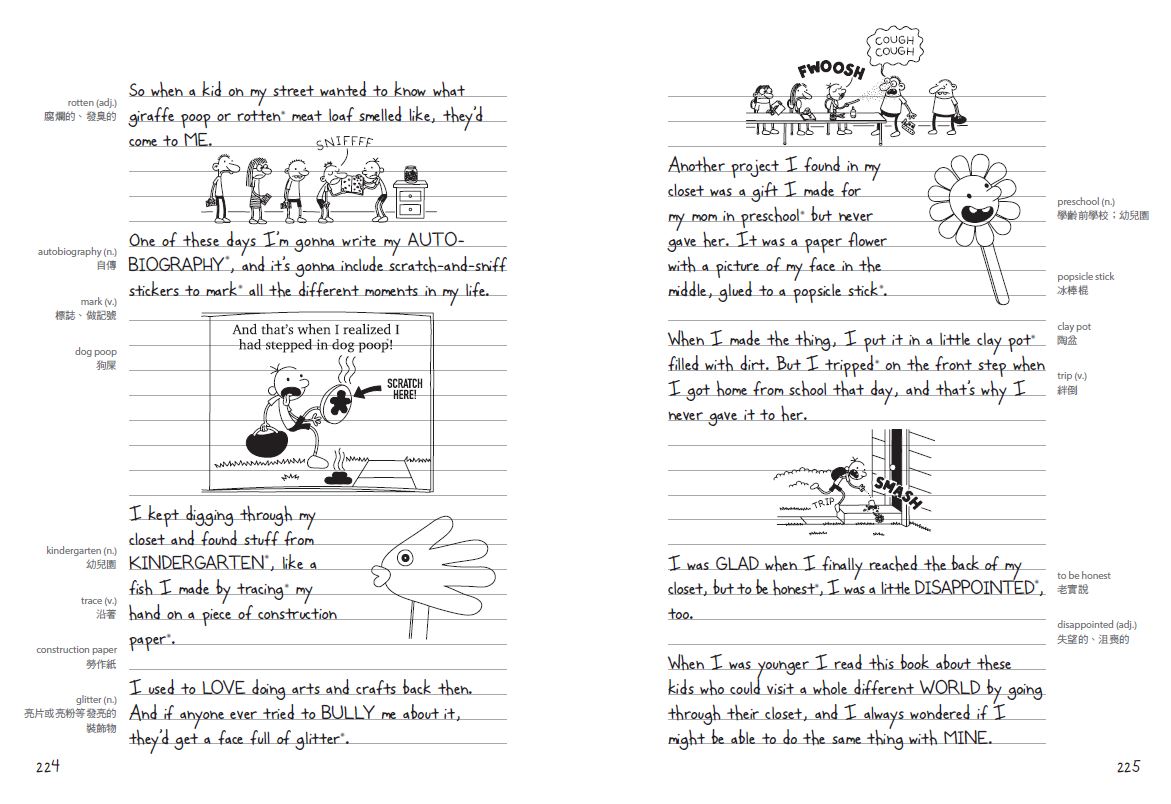 So when a kid on my street wanted to know what
rotten (adj.)
腐爛的、發臭的
giraffe poop or rotten* meat loaf smelled like, they'd
come to ME.
SNIFFFF
One of these days I'm gonna write my AUTO-
autobiography (n.)
自傳
BIOGRAPHY*, and it's gonna include scratch-and-sniff
stickers to mark* all the different moments in my life.
mark (v.)
標誌、做記號
dog poop
狗屎
And that's when I realized I
had stepped in dog poop!
SCRATCH
HERE!
I kept digging through my
closet and found stuff from
kindergarten (n.)
幼兒園
KINDERGARTEN*, like a
fish I made by tracing* my
trace (v.)
沿著
hand on a piece of construction
paper*.
construction paper
勞作紙
I used to LOVE doing arts and crafts back then.
glitter (n.)
亮片或亮粉等發亮的
裝飾物
And if anyone ever tried to BULLY me about it,
they'd get a face full of glitter*.
224
FWOOSH
COUGH
COUGH
Another project I found in my
closet was a gift I made for
my mom in preschool* but never
preschool (n.)
學齡前學校；幼兒園
gave her. It was a paper flower
with a picture of my face in the
middle, glued to a popsicle stick*.
popsicle stick
冰棒棍
When I made the thing, I put it in a little clay pot*
clay pot
陶盆
filled with dirt. But I tripped* on the front step when
trip (v.)
絆倒
I got home from school that day, and that's why I
never gave it to her.
TRIP
SMASH
I was GLAD when I finally reached the back of my
closet, but to be honest*, I was a little DISAPPOINTED*,
to be honest
老實說
too.
disappointed (adj.)
失望的、沮喪的
When I was younger I read this book about these
kids who could visit a whole different WORLD by going
through their closet, and I always wondered if I
might be able to do the same thing with MINE.
225